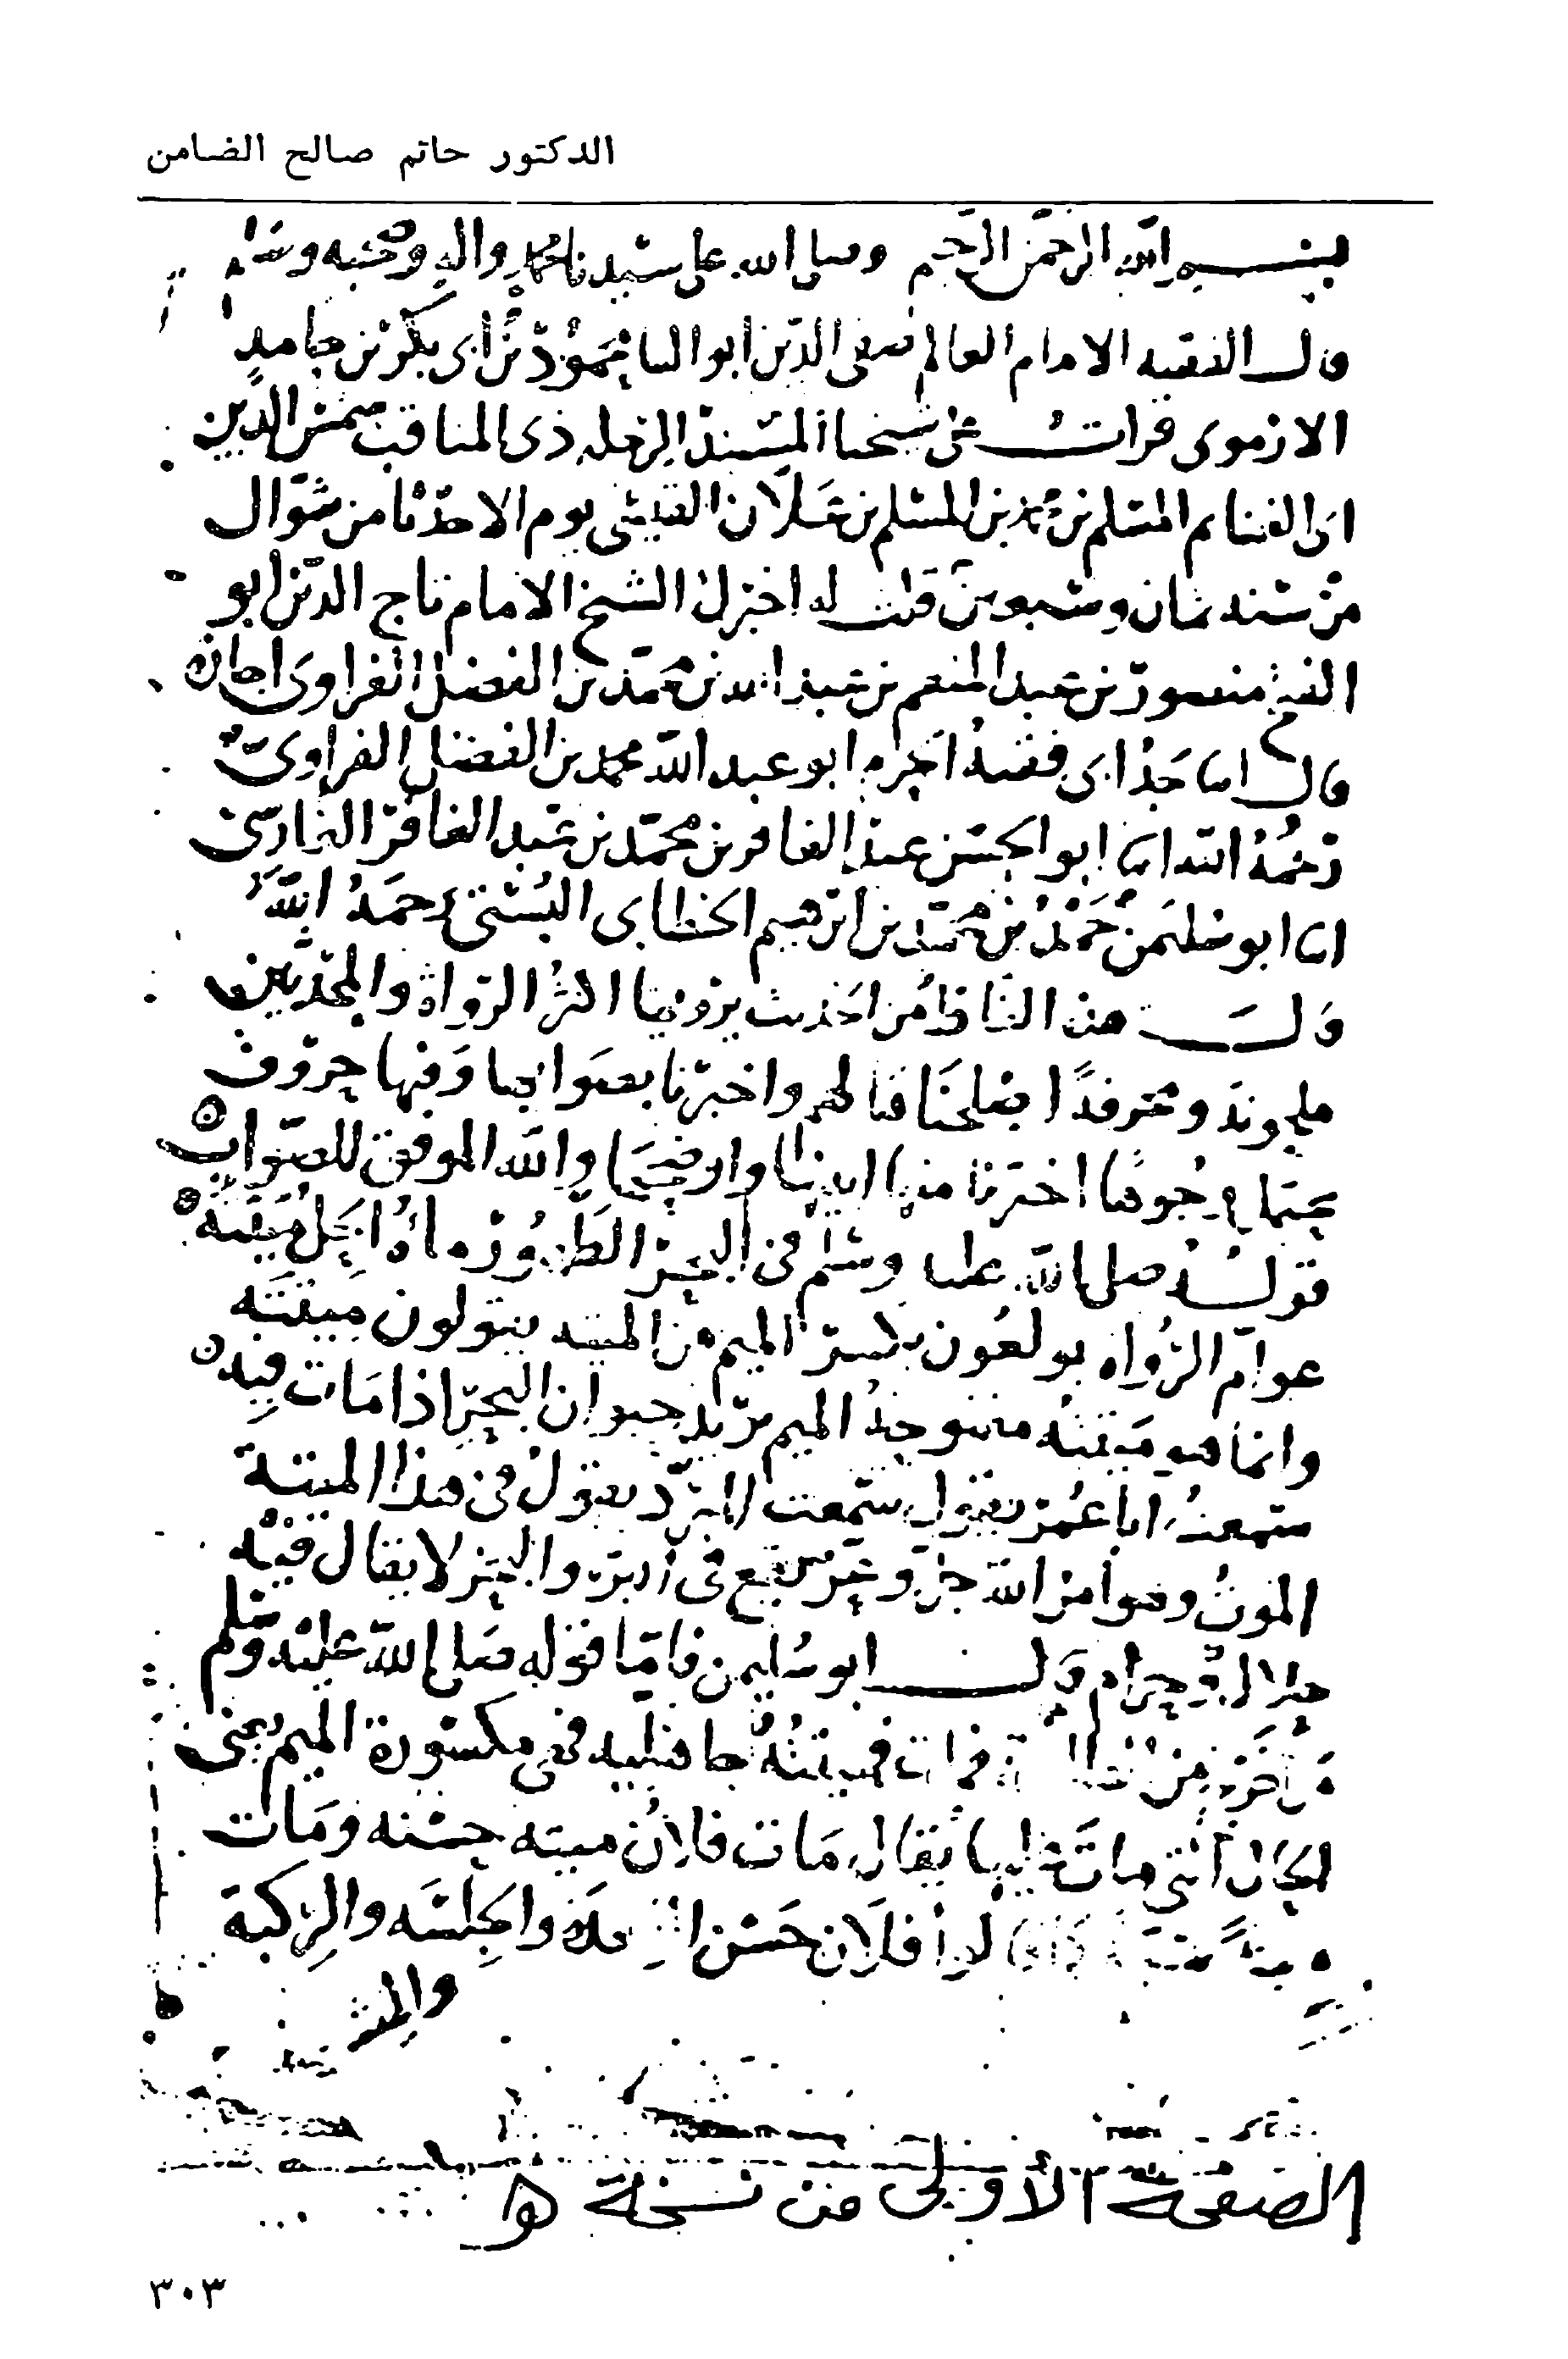 الدكتور حاتم صالح الضامن
بسم الله الرحمن الرحيم وصلى الله على سيدنا محمد واله وصحبه وسلم
قال الفقيه الامام العالم صفى الدين ابو الثنا محمود بن ابى بكر بن حامد
الارموى قرات على شيخنا المسند الرحله ذى المناقب شمس الدين
ابى الغنايم المسلم بن محمد بن المسلم بن علان القيسى يوم الاحد ثامن شوال
من سنه ثمان وسبعين قلت له اخبرك الشيخ الامام تاج الدين ابو
الفتح منصور بن عبد المنعم بن عبد الله بن محمد بن الفضل الفراوى اجازه
قال انا جد ابى فقيه الحرم ابو عبد الله محمد بن الفضل الفراوى
رحمه الله انا ابو الحسين عبد الغافر بن محمد بن عبد الغافر الفارسى
انا ابو سليمن حمد بن محمد بن ابرهيم الخطابى البستى رحمه الله
قال هذه الفاظ من الحديث يرويها اكثر الرواة والمحدثين
ملحونه ومحرفة اصلحناها لهم واخبرنا بصوابها وفيها حروف
تحتمل وجوها اخترنا منها ابينها واوضحها والله الموفق للصواب
قوله صلى الله عليه وسلم فى البحر الطهور ماؤه الحل ميتته
عوام الرواه يولعون بكسر الميم من الميته يقولون ميتته
وانما هو ميتته مفتوحة الميم يريد حيوان البحر اذا مات فيه
سمعت ابا عمر يقول سمعت المبرد يقول فى هذا الميتة
الموت وهو امر الله جل وعز يقع فى البر والبحر لا يقال فيه
حلال وحرام قال ابو سليمن فاما قوله صلى الله عليه وسلم
من خرج من فمات فميتته جاهليه فهى مكسورة الميم يعنى
الحال التى مات عليها يقال مات فلان ميته حسنه ومات
ميتة فلان حسن القعدة والجلسه والركبة
الصفحة الأولى من نسخة هـ
٣٠٣